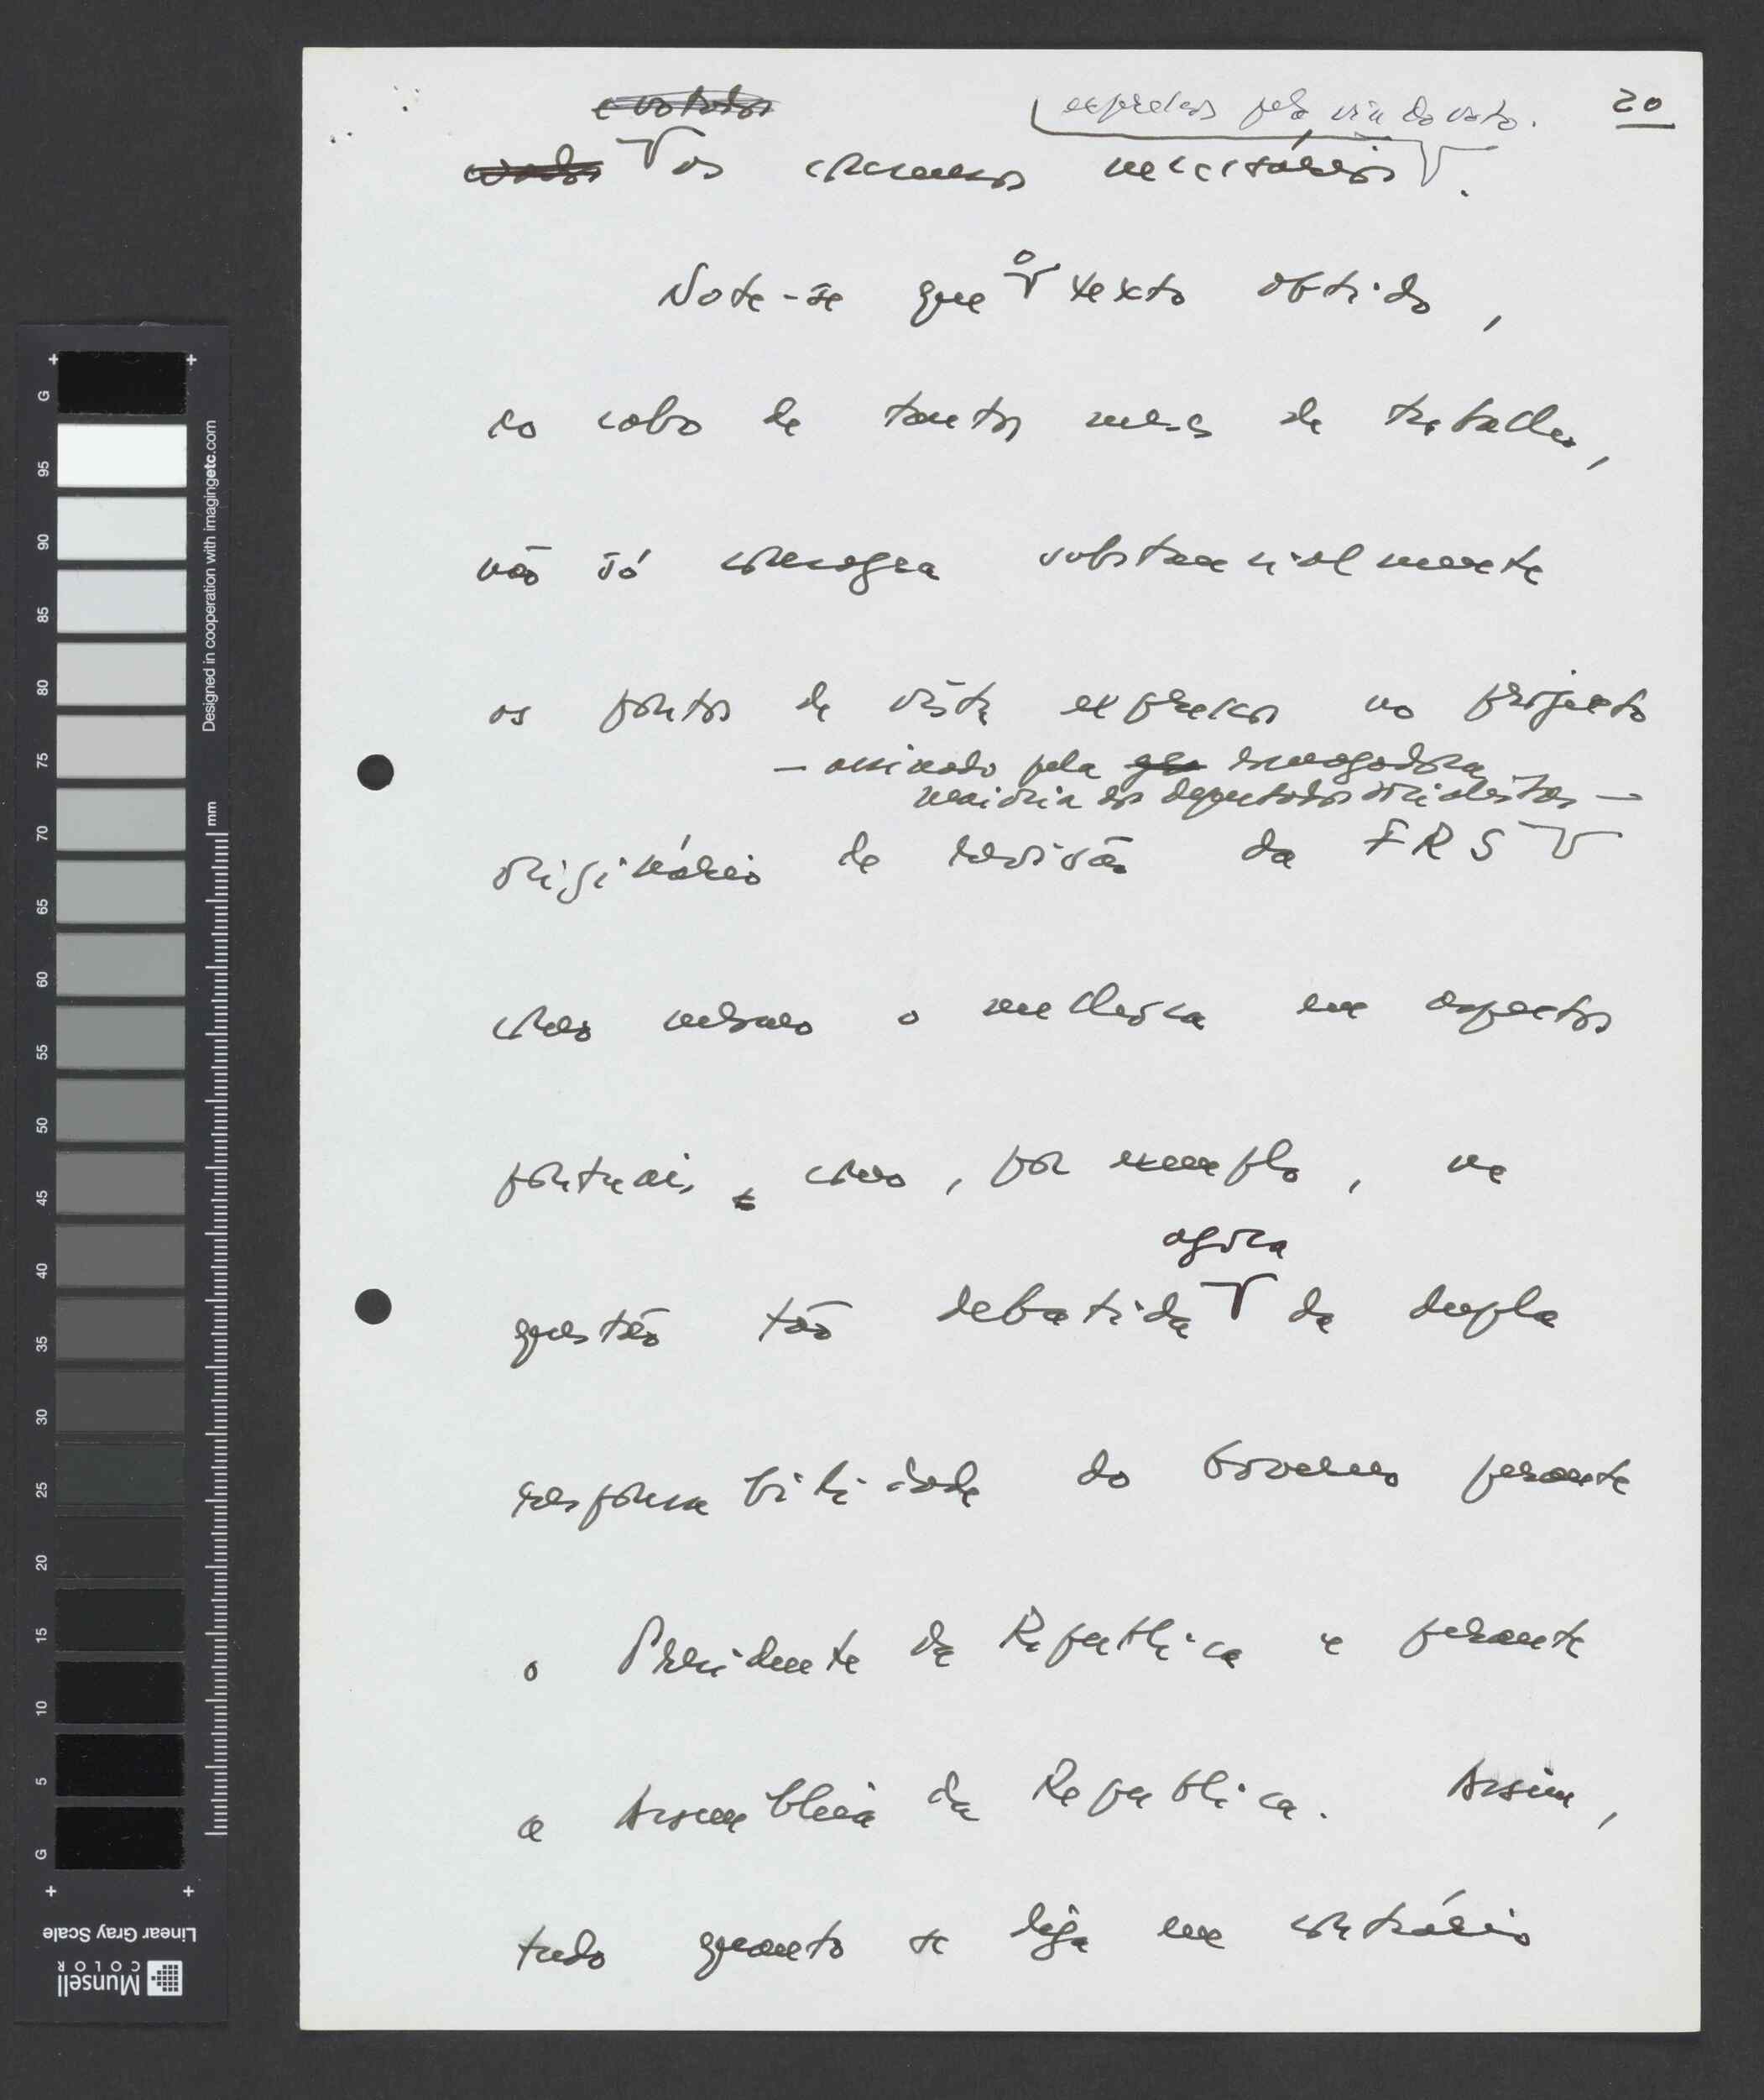 20
e votados
expressos pela via do voto.
os consensos necessários.
Note-se que o texto obtido,
ao cabo de tantos meses de trabalho,
não só consagra substancialmente
os pontos de vista expressos no projecto
— assinado pela esmagadora
maioria dos deputados socialistas —
originário de revisão da FRS
como mesmo o melhora em aspectos
pontuais, como, por exemplo, na
agora
questão tão debatida da dupla
responsabilidade do Governo perante
o Presidente da República e perante
a Assembleia da República. Assim,
tudo quanto se diga em contrário
G
95
90
85
80
75
70
65
60
55
50
45
40
35
30
25
20
15
10
5
G
mm
Designed in cooperation with imagingetc.com
Linear Gray Scale
Munsell
COLOR